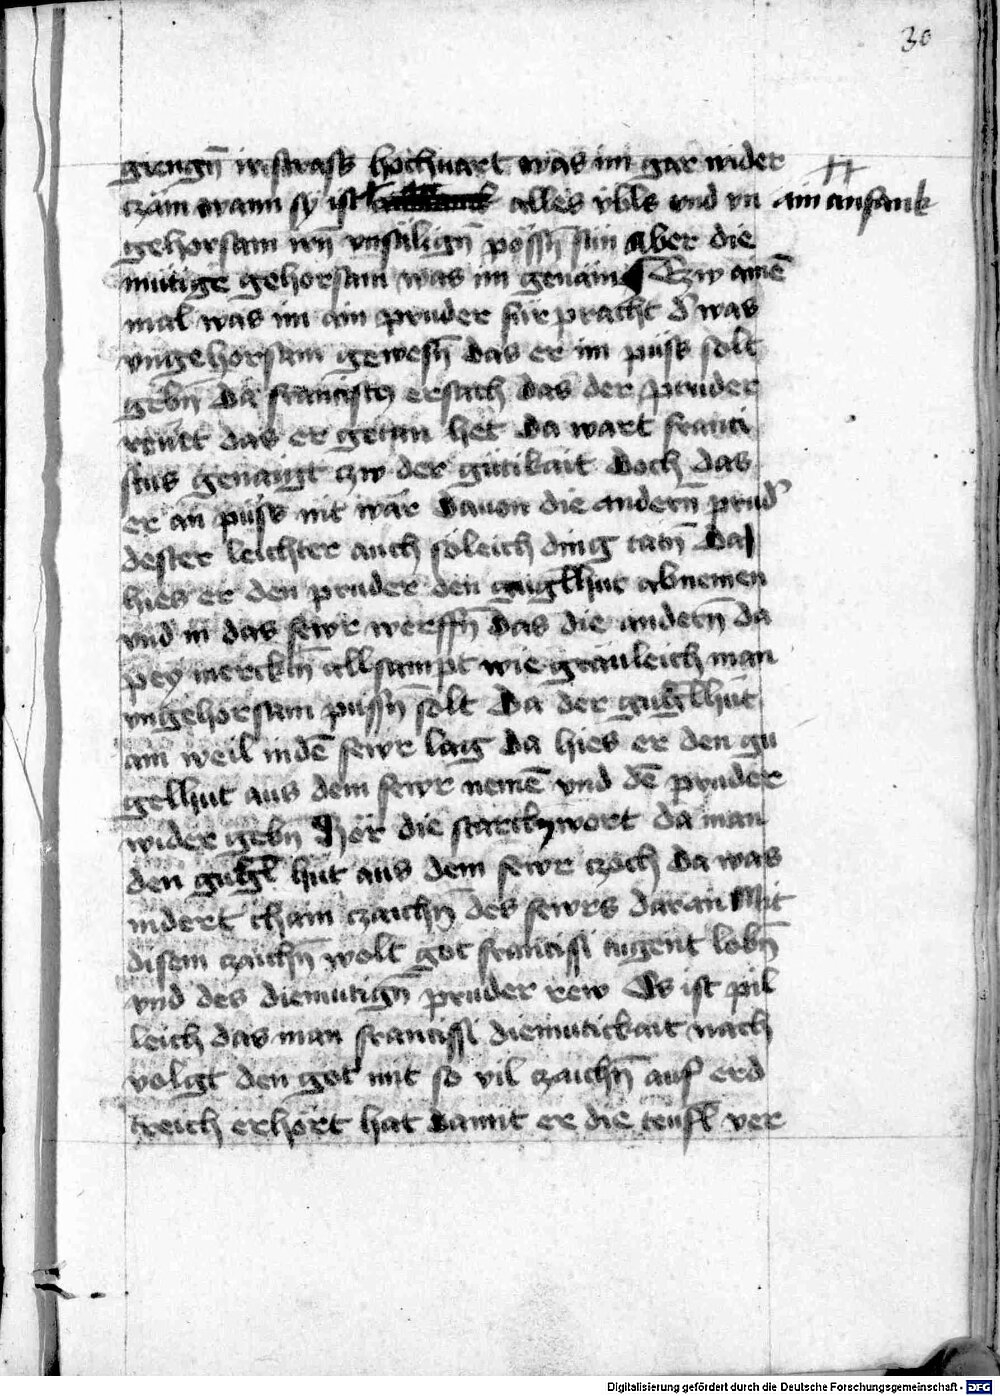 30
giengn̄ irstrass hochuart was im gar wider
czäm wann sy ist alles vbls vnd vn
ain anfank
gehorsam irn̄ vnsälign̄ pössn̄ sin Aber die
mütige gehorsam was im genäm Czw ainē
mal was im ain pruder für pracht d' was
vngehorsam gewesn̄ das er im püss solt
gebn̄ Da franciscus ersach das der pruder
rewtt das er getan het Da wart franci
scus genaigt czw der gütikait Doch das
er an püss nit wär Dauon die andern̄ prud'
dester leichter auch soleich ding tatn̄ Da
hies er den pruder den guglhut abnemen
vnd in das fewr werffn̄ Das die andern̄ da
pey merckn̄ allsampt wie gräuleich man
vngehorsam püssn̄ solt Da der guglhut
ain weil in dē fewr lag Da hies er den gu
gelhut aus dem fewr nemē vnd dē pruder
wider gebn̄ Hör die starckn wort da man
den gugl hut aus dem fewr czoch Da was
indert chain czaichn̄ des fewrs daran Mit
disem czaichn̄ wolt got francissi tugent lobn̄
vnd des diemutign̄ pruder rew Es ist pil
leich das man francissi diemutickait nach
volgt den got mit so vil czaichn̄ auf erd
treich erhört hat Damit er die teufl ver
Digitalisierung gefördert durch die Deutsche Forschungsgemeinschaft - DFG